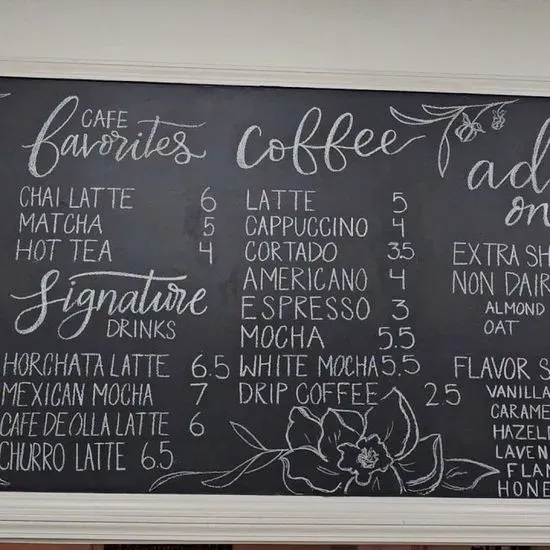 CAFE
favorites
CHAI LATTE 6
MATCHA 5
HOT TEA 4
Signature
DRINKS
HORCHATA LATTE 6.5
MEXICAN MOCHA 7
CAFE DE OLLA LATTE 6
CHURRO LATTE 6.5
coffee
LATTE 5
CAPPUCCINO 4
CORTADO 35
AMERICANO 4
ESPRESSO 3
MOCHA 5.5
WHITE MOCHA 5.5
DRIP COFFEE 2.5
ad
on
EXTRA SH
NON DAIR
ALMOND
OAT
FLAVOR S
VANILLA
CARAME
HAZEL
LAVEN
FLAN
HONE